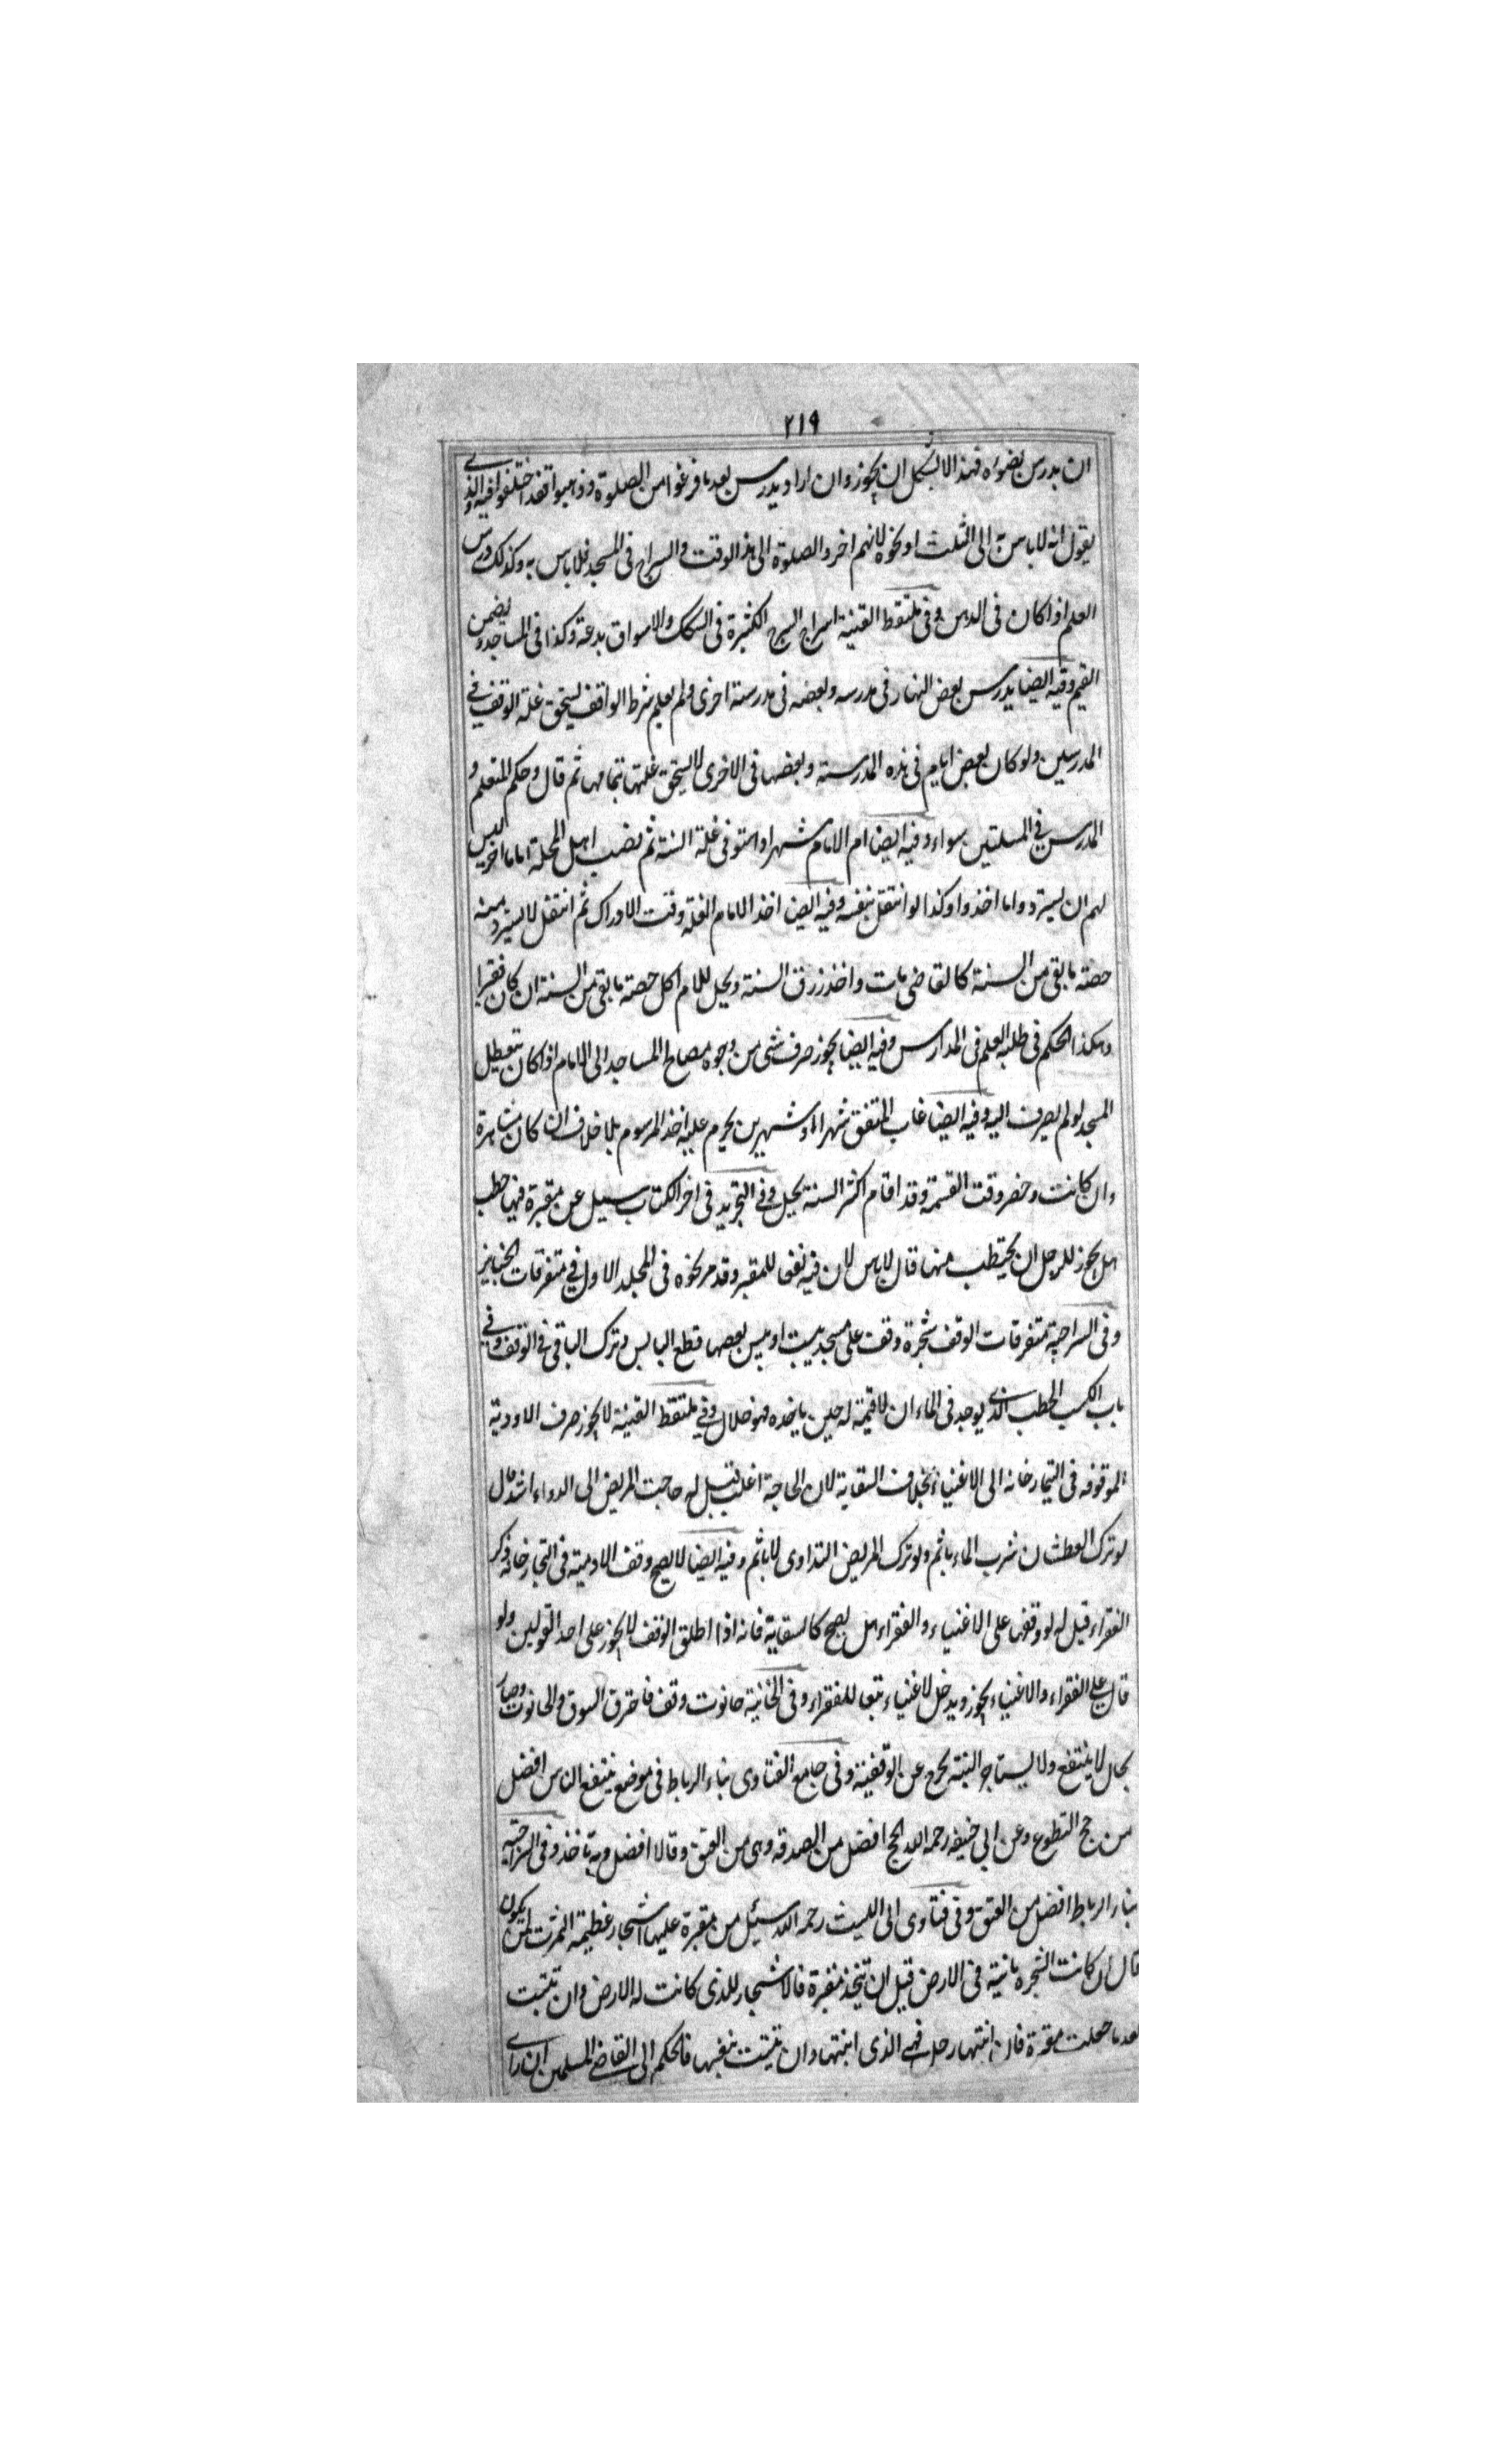 ٢١٩
ان يدرس بضواه فهذا لا يشكل ان يجوز وان اراد يدرس بعد ما فرغوا من الصلوة وذهبوا فقد اختلفوا فيه والذي
يقول انه لا باس به الى الثلث او نحوه لانهم اخروا الصلوة الى هذا الوقت والسراج فى المسجد فلا باس به وكذلك درس
العلم اذا كان فى الدهن وفى ملتقط القنية اسراج السرج الكثيرة فى السكك والاسواق بدعة وكذا فى المساجد ويضمن
القيم وفيه ايضا يدرس بعض النهار فى مدرسه وبعضه فى مدرسة اخرى ولم يعلم شرط الواقف يستحق غلة الوقف في
المدرسين ولو كان بعض ايام فى هذه المدرسة وبعضها فى الاخرى لا يستحق غلتها بتمامها ثم قال وحكم المتعلم و
المدرس في المسلتين سواء وفيه ايضا ام الامام شهرا واستوفى غلة السنة ثم نصب اهل المحلة اماما اخر ليس
لهم ان يستردوا ما اخذوا وكذا لو انتقل بنفسه وفيه ايضا اخذ الامام الغلة وقت الادراك ثم انتقل لا يسترد منه
حصته ما بقى من السنة كالقاضى مات واخذ رزق السنة ويحل للامام اكل حصته ما بقى من السنة ان كان فقيرا
وهكذا الحكم فى طلبة العلم فى المدارس وفيه ايضا يجوز صرف شى من وجوه مصالح المساجد الى الامام اذا كان يتعطل
المسجد لو لم يصرف اليه وفيه ايضا غاب المتفق شهرا او شهرين يحرم عليه اخذ المرسوم بلا خلاف ان كان مشاهرة
وان كانت وحضر وقت القسمة وقد اقام اكثر السنة يحل وفى التجريد فى اخر الكتاب سيل عن مقبرة فيها حطب
هل يجوز للرجل ان يحتطب منها قال لا باس لان فيه نفعا للمقبر وقد مر نحوه فى المجلد الاول في متفرقات الجنايز
وفى السراجية متفرقات الوقف شجرة وقف على مسجد يبست او يبس بعضها قطع اليابس وترك الباقى في الوقف وفي
باب الكسب الحطب الذى يوجد فى الماء ان لا قيمة له حين ياخذه فهو حلال وفي ملتقط القنية لا يجوز صرف الاودية
الموقوفه فى التيمارخانه الى الاغنياء بخلاف السقاية لان الحاجة اغلب قيل له حاجت المريض الى الدواء اشد قال
لو ترك العطشان شرب الماء ياثم ولو ترك المريض التداوى لا ياثم وفيه ايضا لا يصح وقف الادوية فى التيمارخانه ذكر
الفقراء قيل له لو وقفها على الاغنياء والفقراء هل يصح كالسقاية فانه اذا اطلق الوقف لا يجوز على احد القولين ولو
قال على الفقراء والاغنياء يجوز ويدخل لاغنياء تبعا للفقراء وفى الخانية حانوت وقف فاحترق السوق والحانوت وصار
بحال لا ينتفع ولا يستاجر البتة يخرج عن الوقفية وفى جامع الفتاوى بناء الرباط فى موضع ينتفع الناس افضل
من حج التطوع وعن ابي حنيفه رحمه الله الحج افضل من الصدقه وهى من العتق وقالا افضل وبه ناخذ وفى السراجيه
بناء الرباط افضل من العتق وفى فتاوى ابى الليث رحمه الله سئيل من مقبرة عليها اشجار عظيمة اثمرت لمن يكون
قال ان كانت الشجره نابتة فى الارض قبل ان يتخذ مقبرة فالاشجار للذى كانت له الارض وان نبتت
بعد ما جعلت مقبرة فان انبتها رجل فهى الذى انبتها وان نبتت بنفسها فالحكم الى القاضي المسلمين ان راى